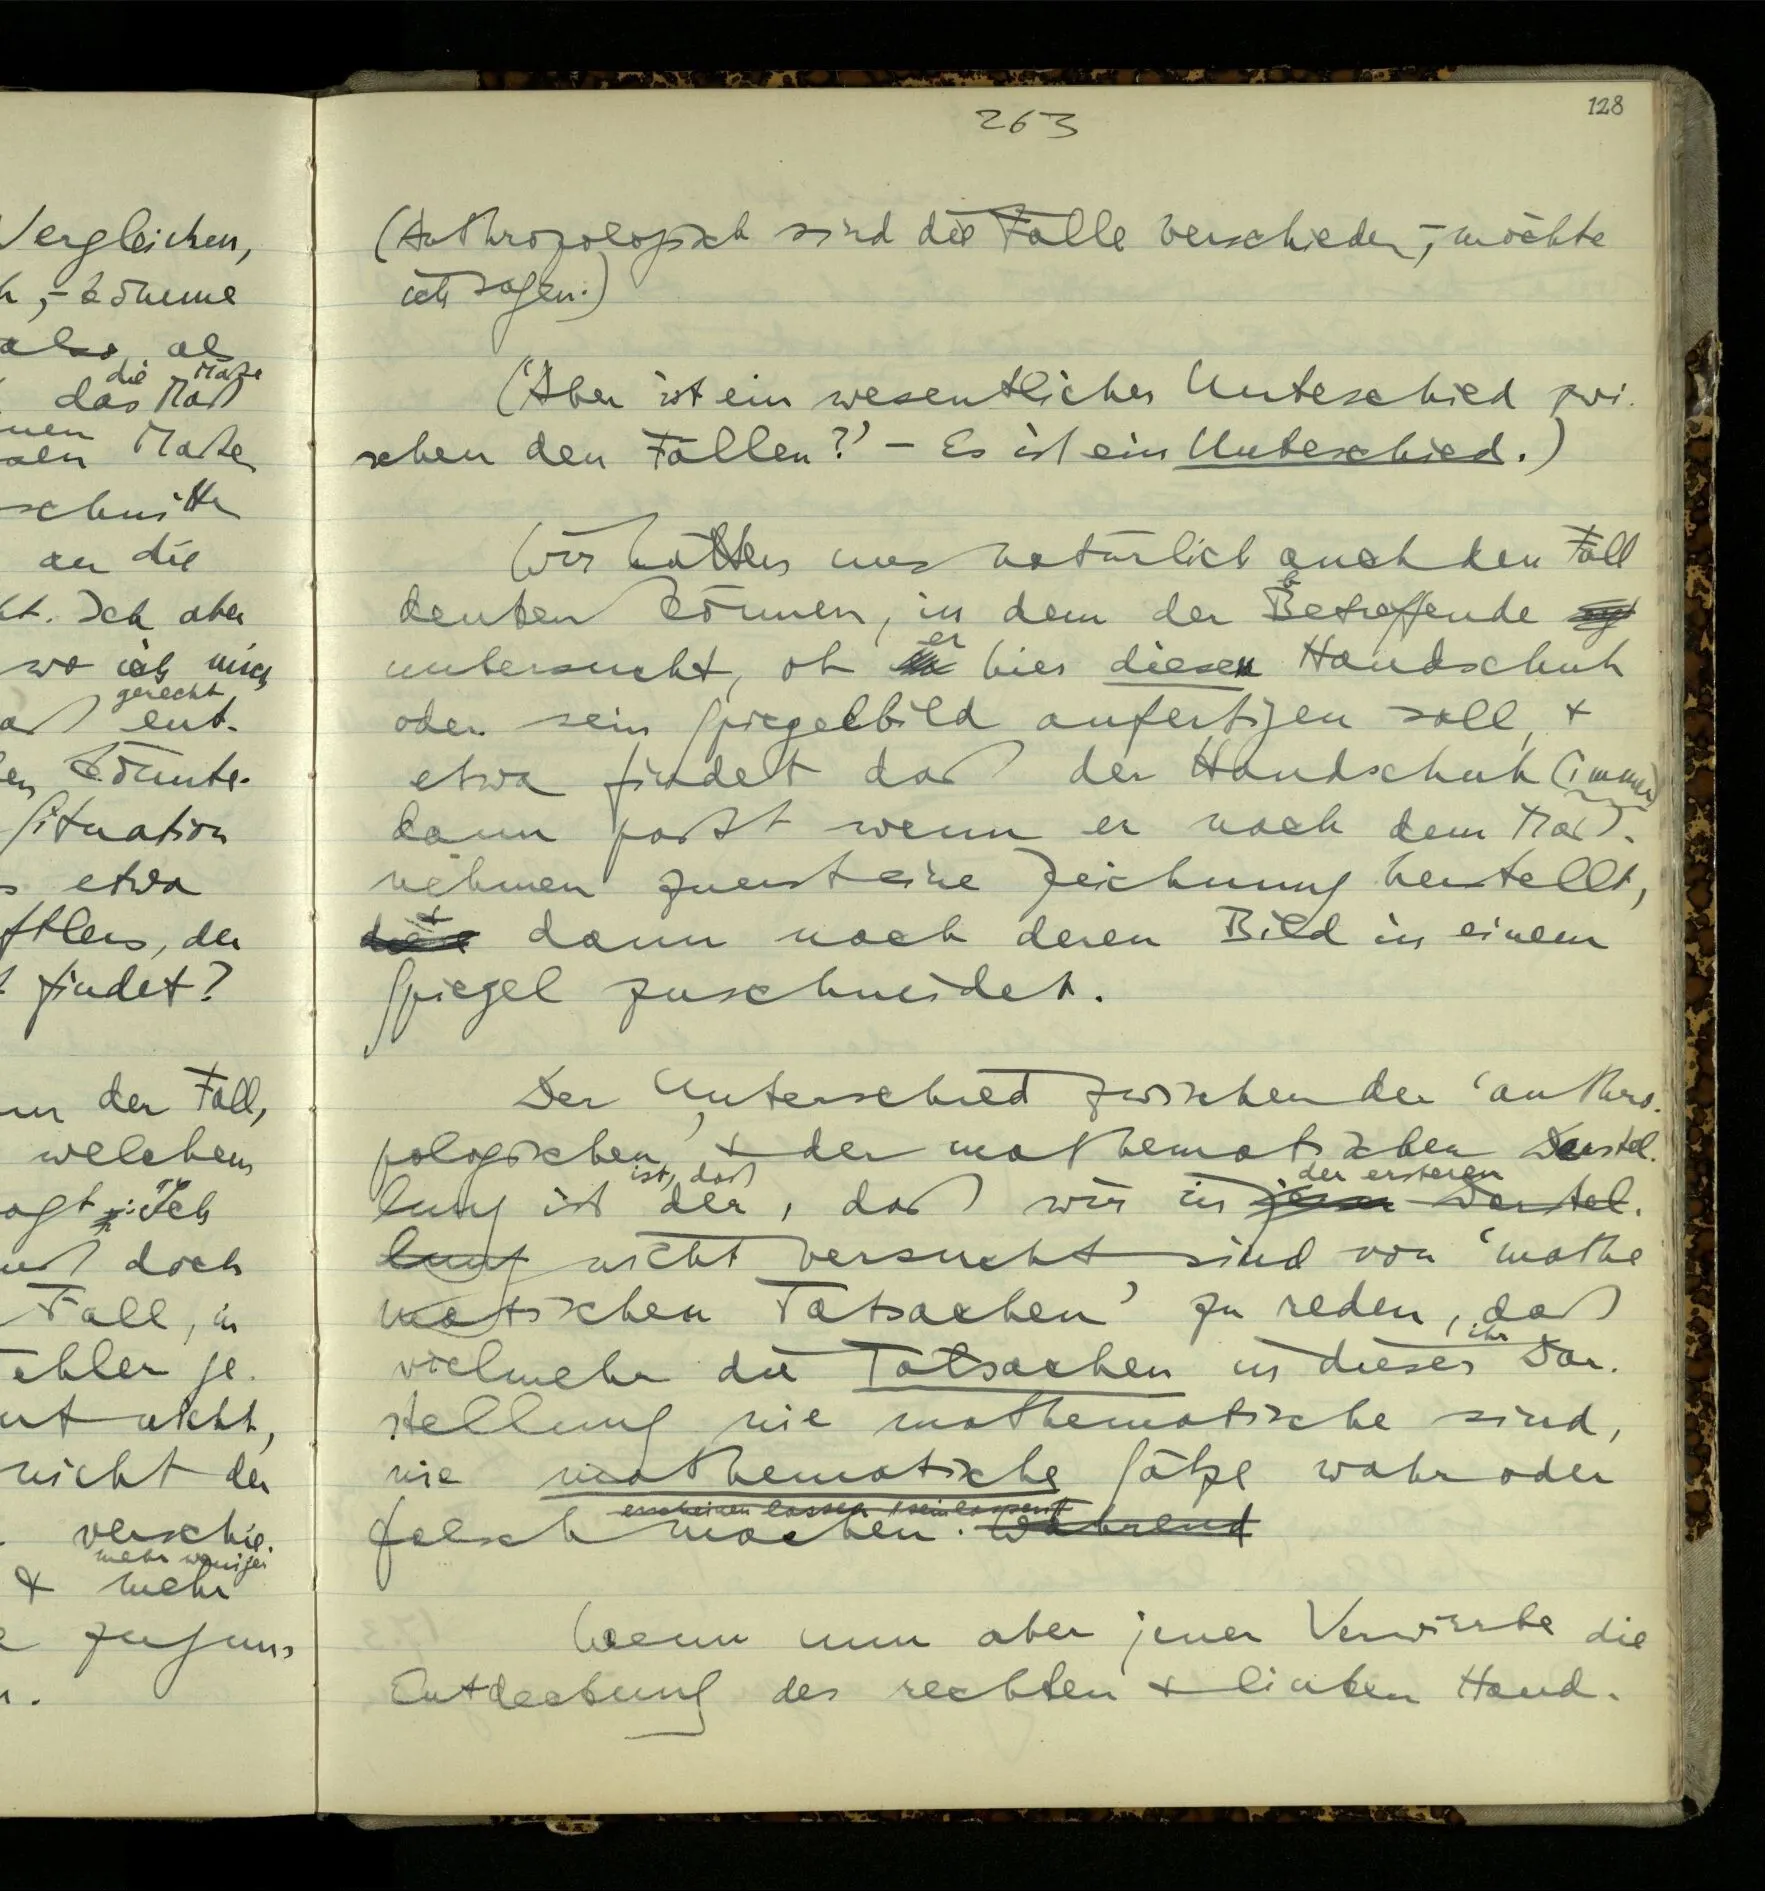 Vergleichen,
h, – könnte
also, als
die Maße
das Maß
nen Maßen
schnitte
an die
ht. Ich aber
wo ich mich
gerecht
aß ent-
en könnte.
Situation
s etwa
ftlers, der
t findet?
nn der Fall,
welchem
agt: "Ich
uß doch
Fall, in
ehler je-
ut nicht,
nicht der
verschie-
mehr weniger
& mehr
e
n.
263
128
(Anthropologisch sind die Fälle verschieden, – möchte
ich sagen.)
('Aber ist ein wesentlicher Unterschied zwi-
schen den Fällen?' – Es ist ein Unterschied.)
Wir hätten uns natürlich auch den Fall
denken können, in dem der Betreffende
b
untersucht, ob er hier diesen Handschuh
oder sein Spiegelbild anfertigen soll, &
etwa findet daß der Handschuh (immer)
dann paßt wenn er nach dem Maß-
nehmen zuerst eine Zeichnung herstellt,
& dann nach deren Bild in einem
Spiegel zuschneidet.
Der Unterschied zwischen der 'anthro-
pologischen' & der mathematischen Darstel-
ist, daß der ersteren
lung ist der, daß wir in jener Darstel-
lung nicht versucht sind von 'mathe
matischen Tatsachen' zu reden, daß
ihr
vielmehr die Tatsachen in dieser Dar-
stellung nie mathematische sind,
nie mathematische Sätze wahr oder
erscheinen lassen / sein lassen
falsch machen. Während
Wenn nun aber jener Verwirrte die
Entdeckung des rechten & linken Hand-